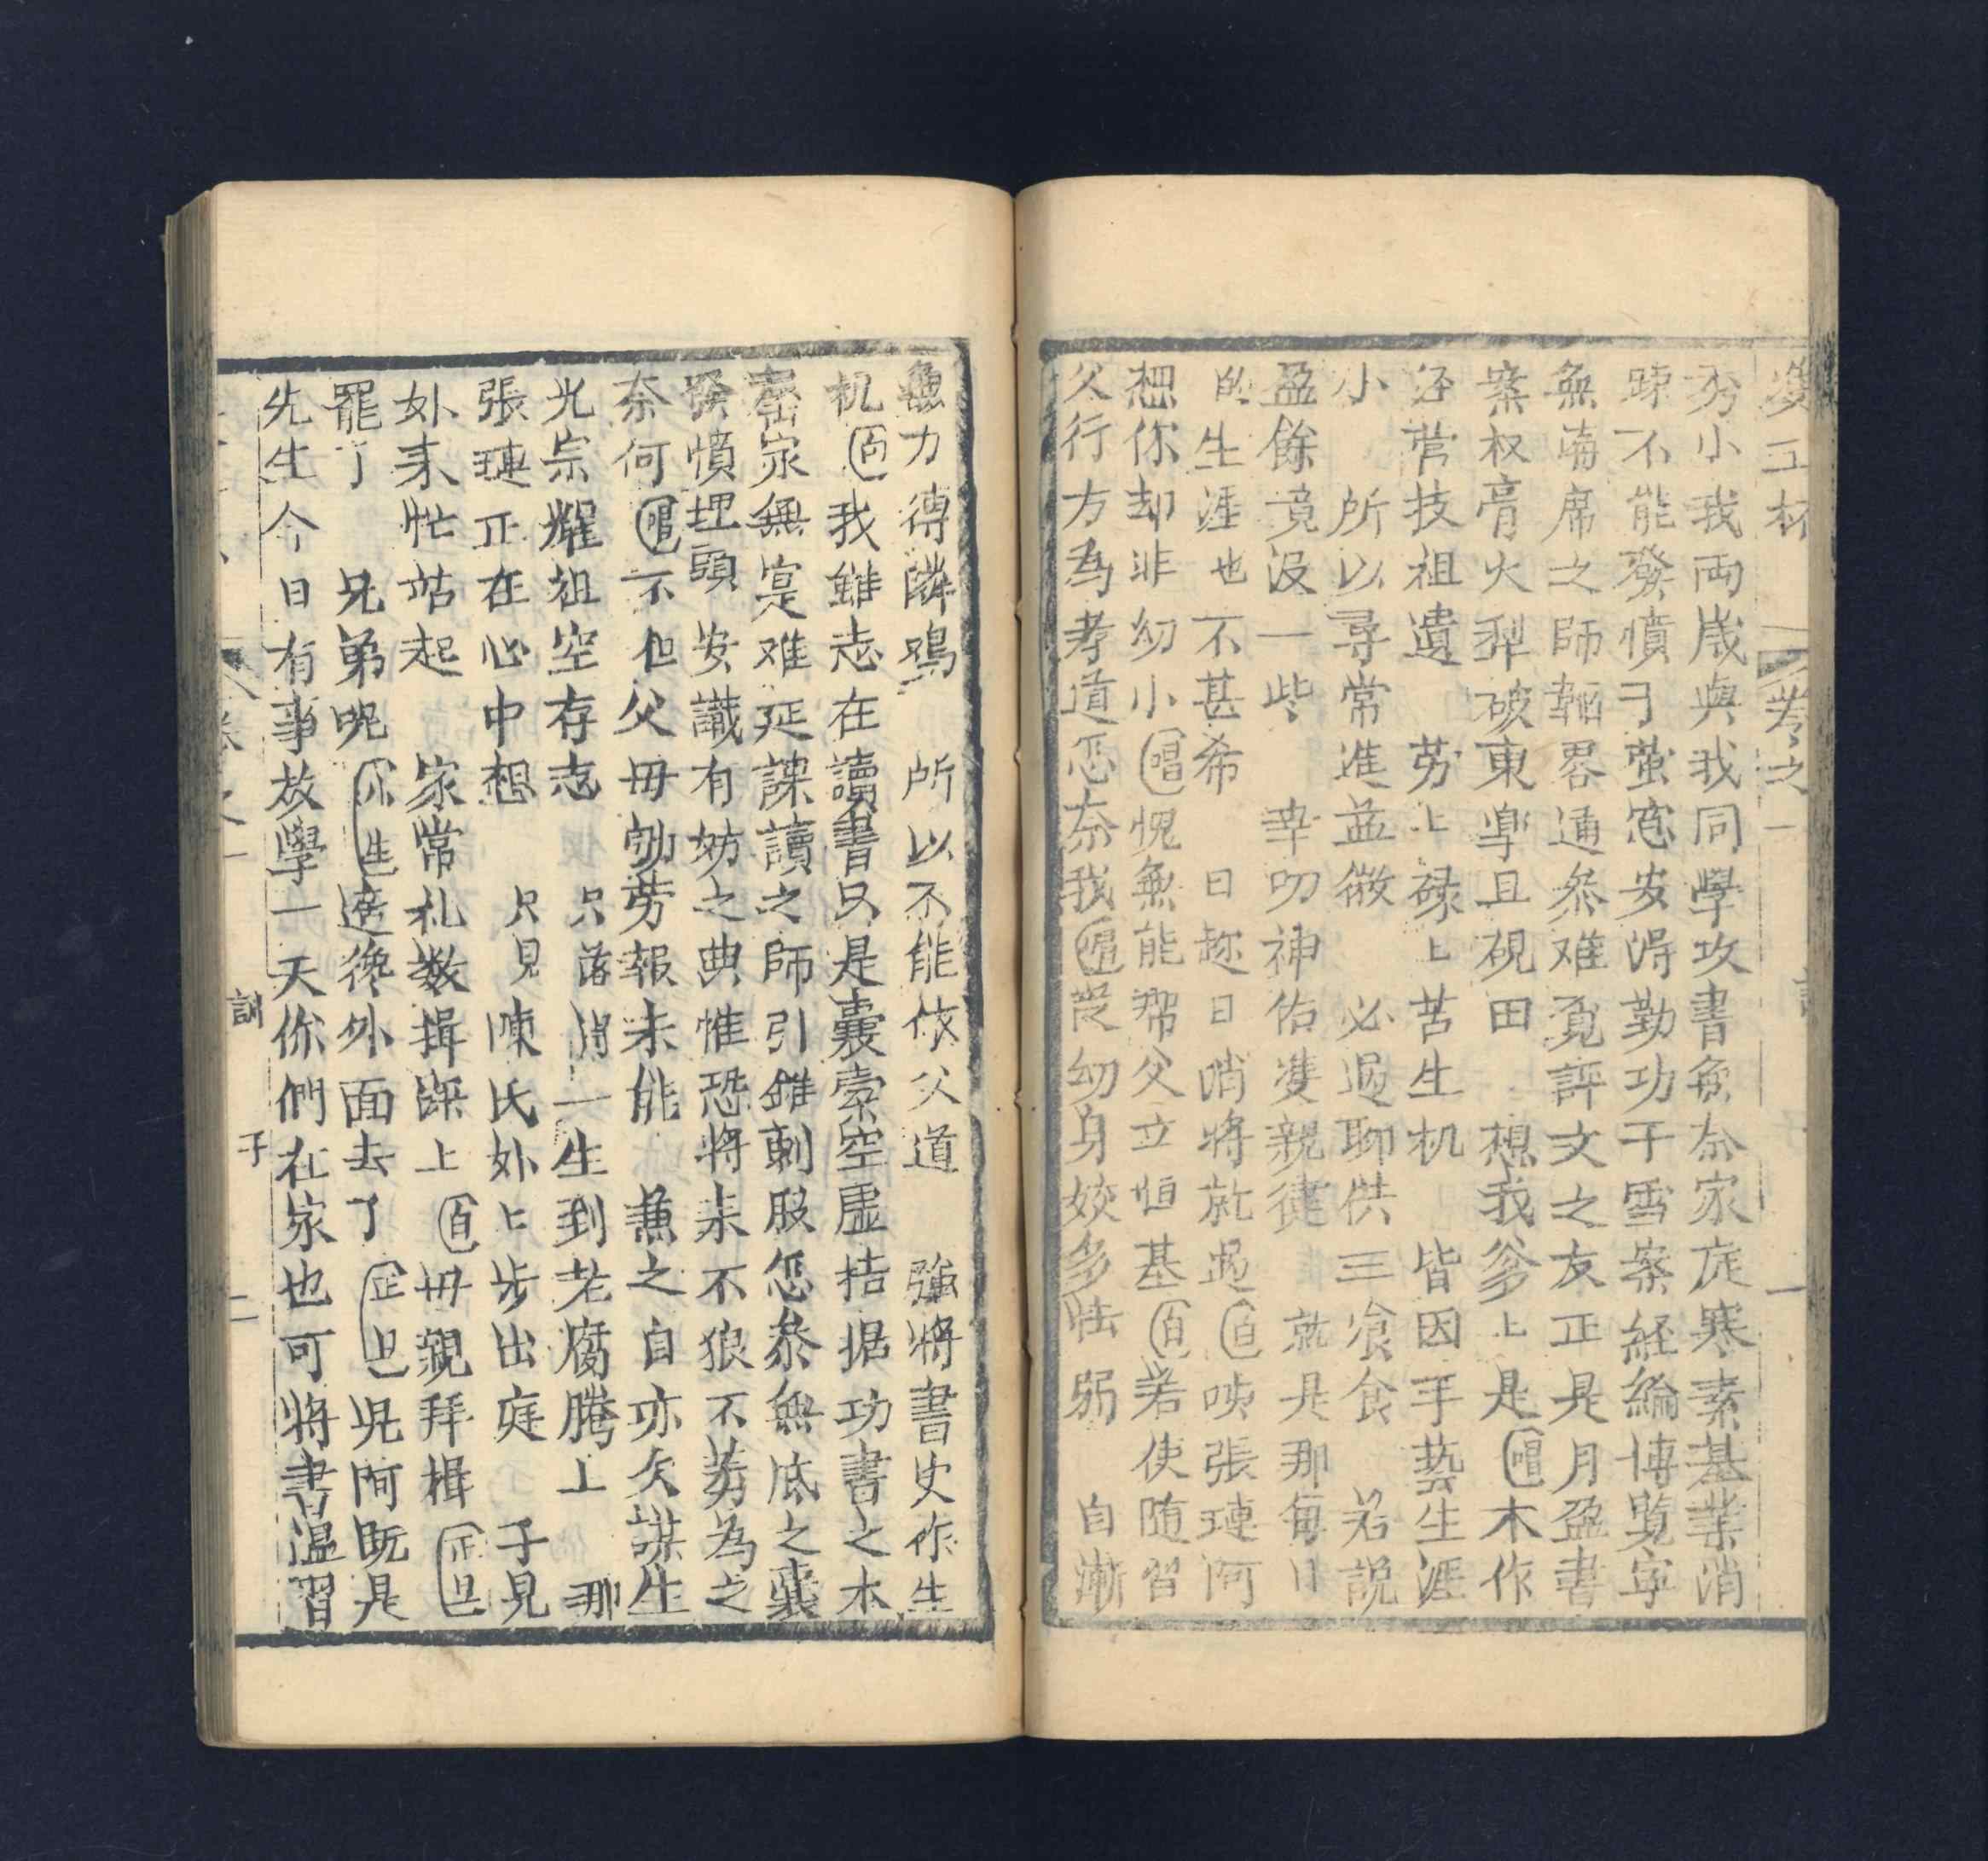 雙玉杯 卷之一 訓 子 一
秀小我両歲與我同學攻書無奈家庭寒素基業消
踈不能發憤于螢窓安淂勤功于雪案経綸博覧字
無南席之師韜畧通叅难覔評文之友正是月盈書
案权膏火犁破東臯且硯田 想我爹上是唱木作
経营技祖遺 劳上碌上苦生机 皆因手藝生涯
小 所以尋常進益微 必過聊供三飡食 若說
盈餘竟没一些 幸叨神佑雙親徤 就是那每日
的生涯也不甚希 日趂日哨將就過白唉張璉阿
想你却非幼小唱愧無能帮父立恒基白若使随習
父行方為孝道怎奈我唱従幼身姣多怯弱 自漸
無力得隣鳮 所以不能依父道 強將書史作生
机白我雖志在讀書只是囊索空虛拮据功書之木
窓家無寔难延課讀之師引錐刺股怎叅無底之囊
發憤埋頭安識有妨之典惟恐將来不狼不莠為之
奈何唱不但父毋劬劳報未能 兼之自亦欠謀生
光宗耀祖空存志 只落淂一生到老腐腾上 那
張璉正在心中想 只見陳氏外上步出庭 子見
外来忙站起 家常礼数揖深上白毋親拜楫正旦
罷了 兄弟呢小生適纔外面去了正旦児阿既是
先生今日有事放學一天你們在家也可將書温習
卷之一 訓 子 二